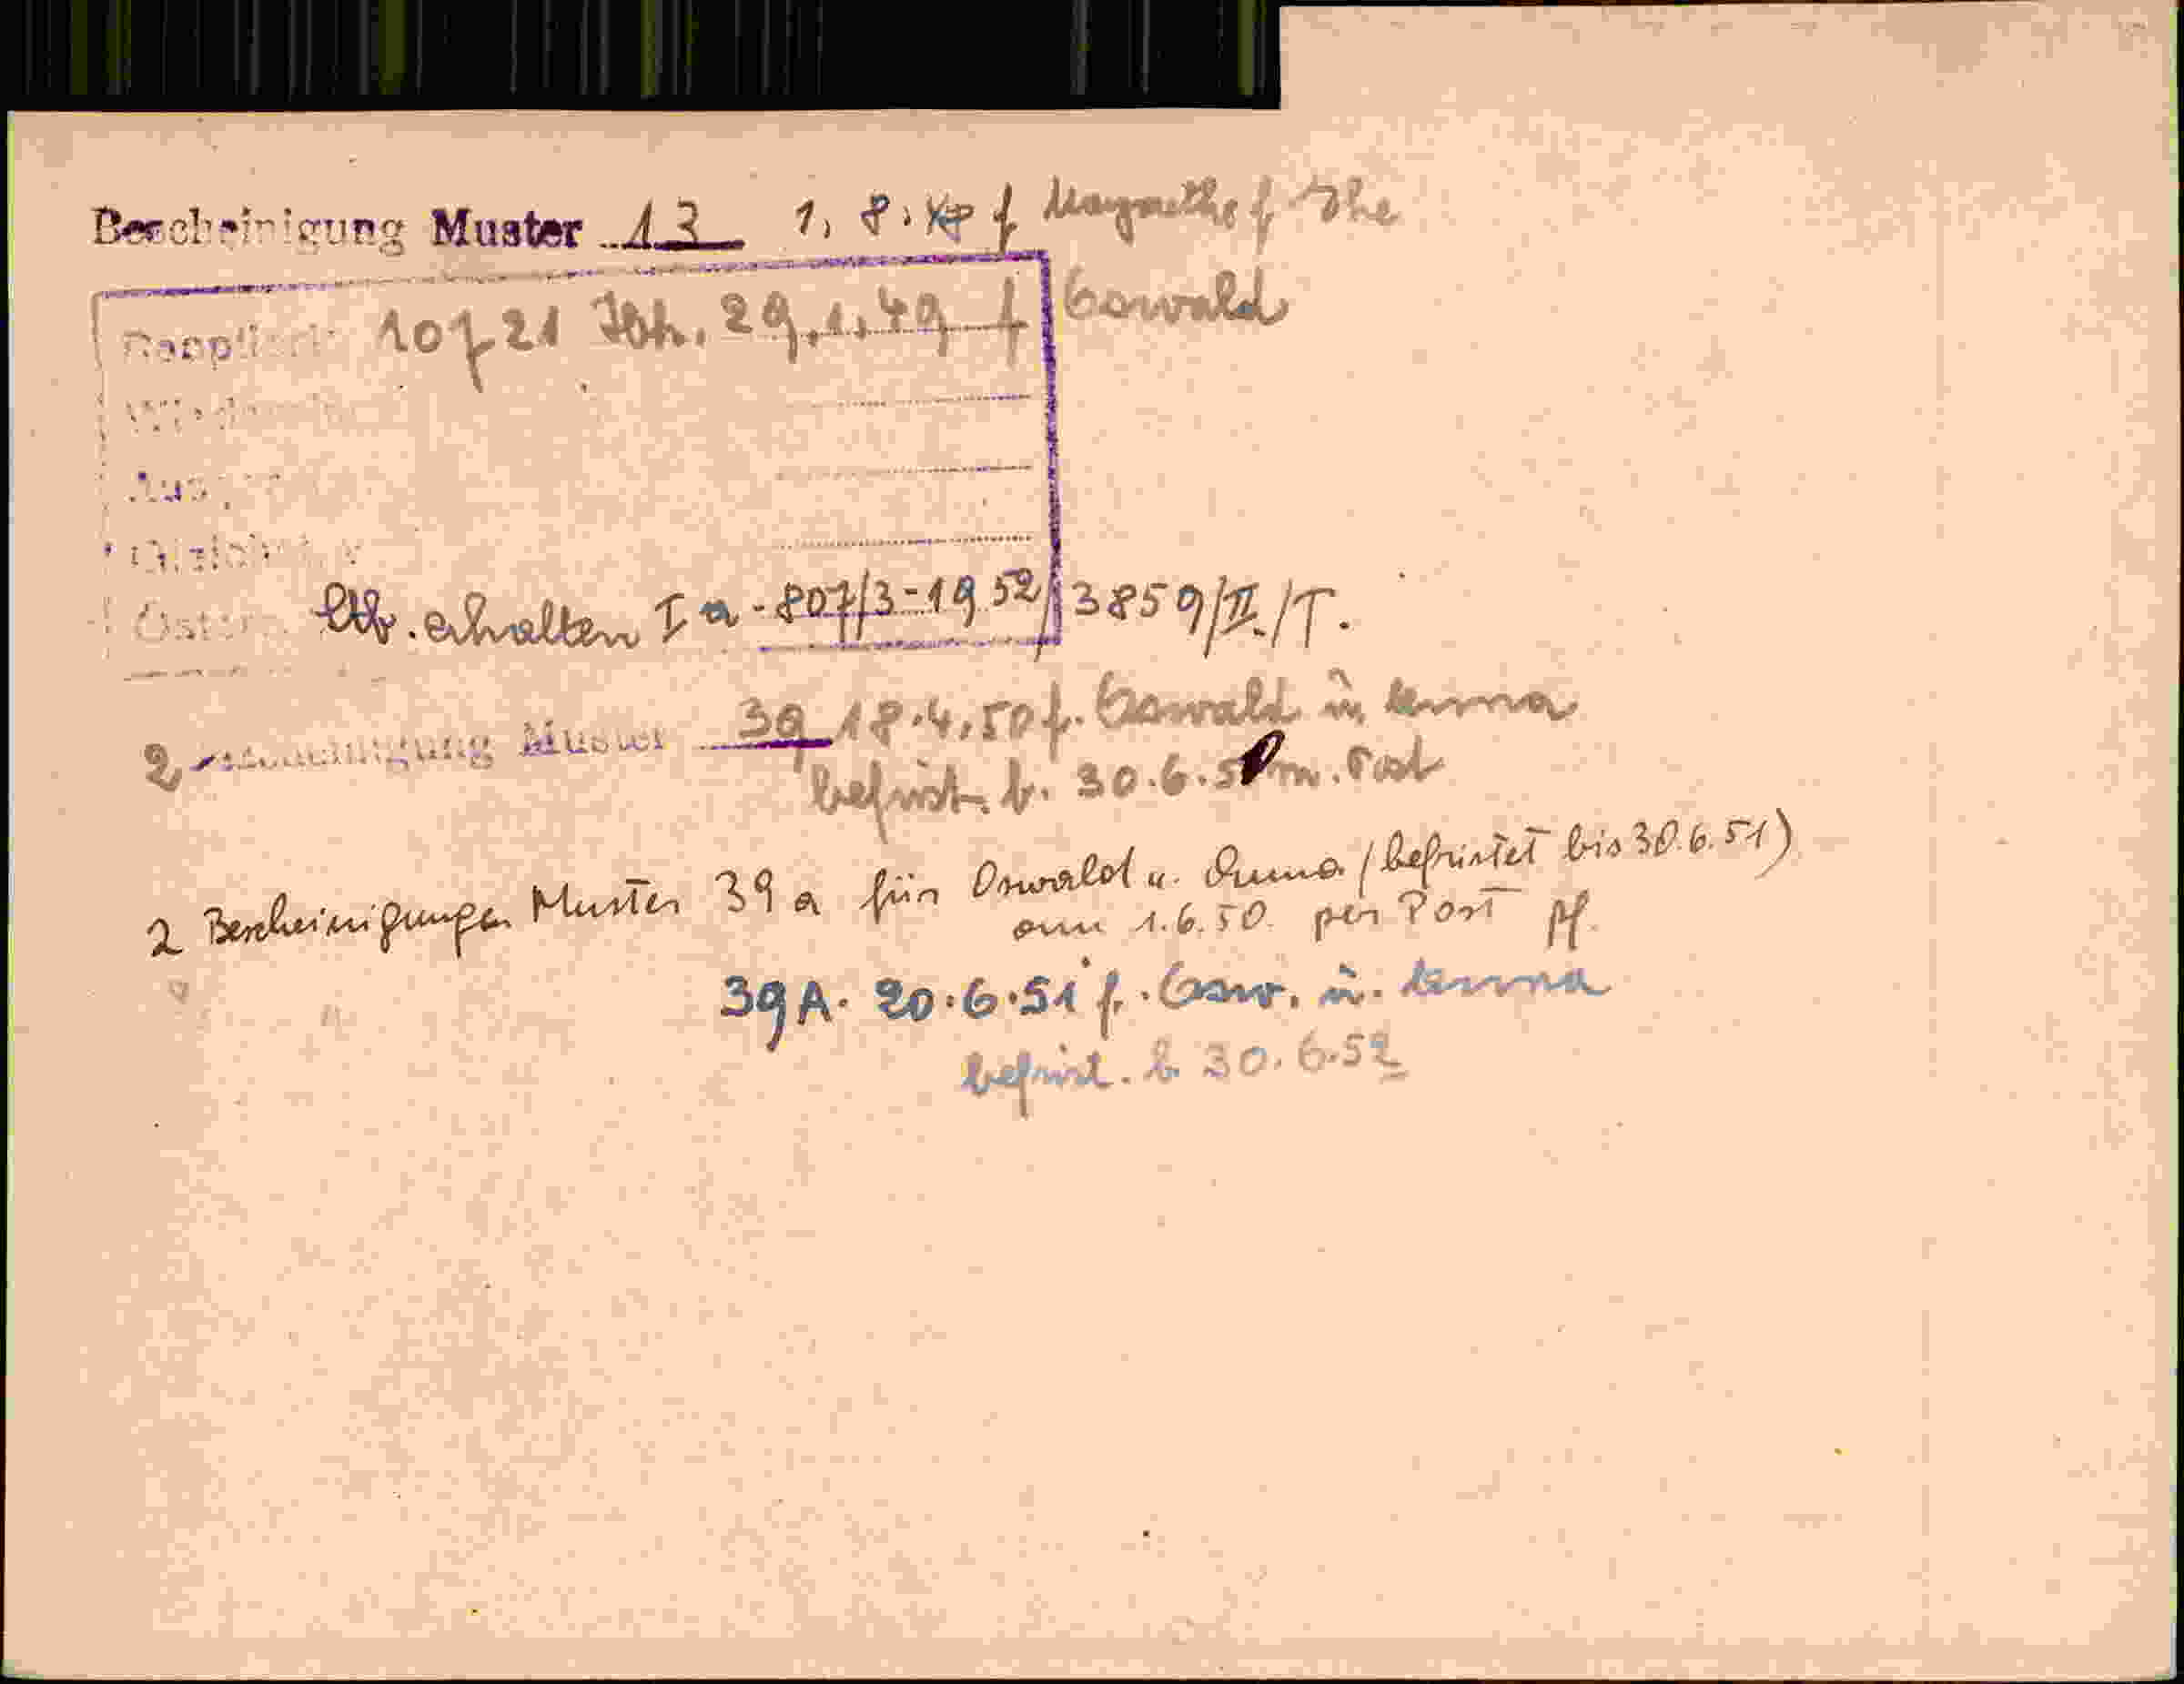 Bescheinigung Muster 13 1. 8. 48 f Margarethe f Ehe
Reoptiert: 10 f 21 Ibk. 29.1.49 f Oswald
Österr. Stb. erhalten I a - 807/3 - 1952/3859/II./T.
2 Bescheinigung Muster 39 18.4.50 f. Oswald u. Anna
befrist. b. 30.6.50 m. Post
2 Bescheinigungen Muster 39 a für Oswald u. Anna (befristet bis 30.6.51)
am 1.6.50. per Post
39 A. 20.6.51 f. Osw. u. Anna
befrist. b 30.6.52